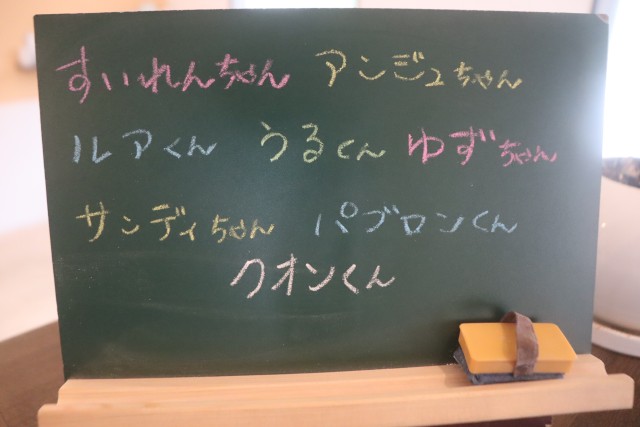 すいれんちゃん アンジュちゃん
ルアくん うるくん ゆずちゃん
サンディちゃん パブロンくん
クオンくん